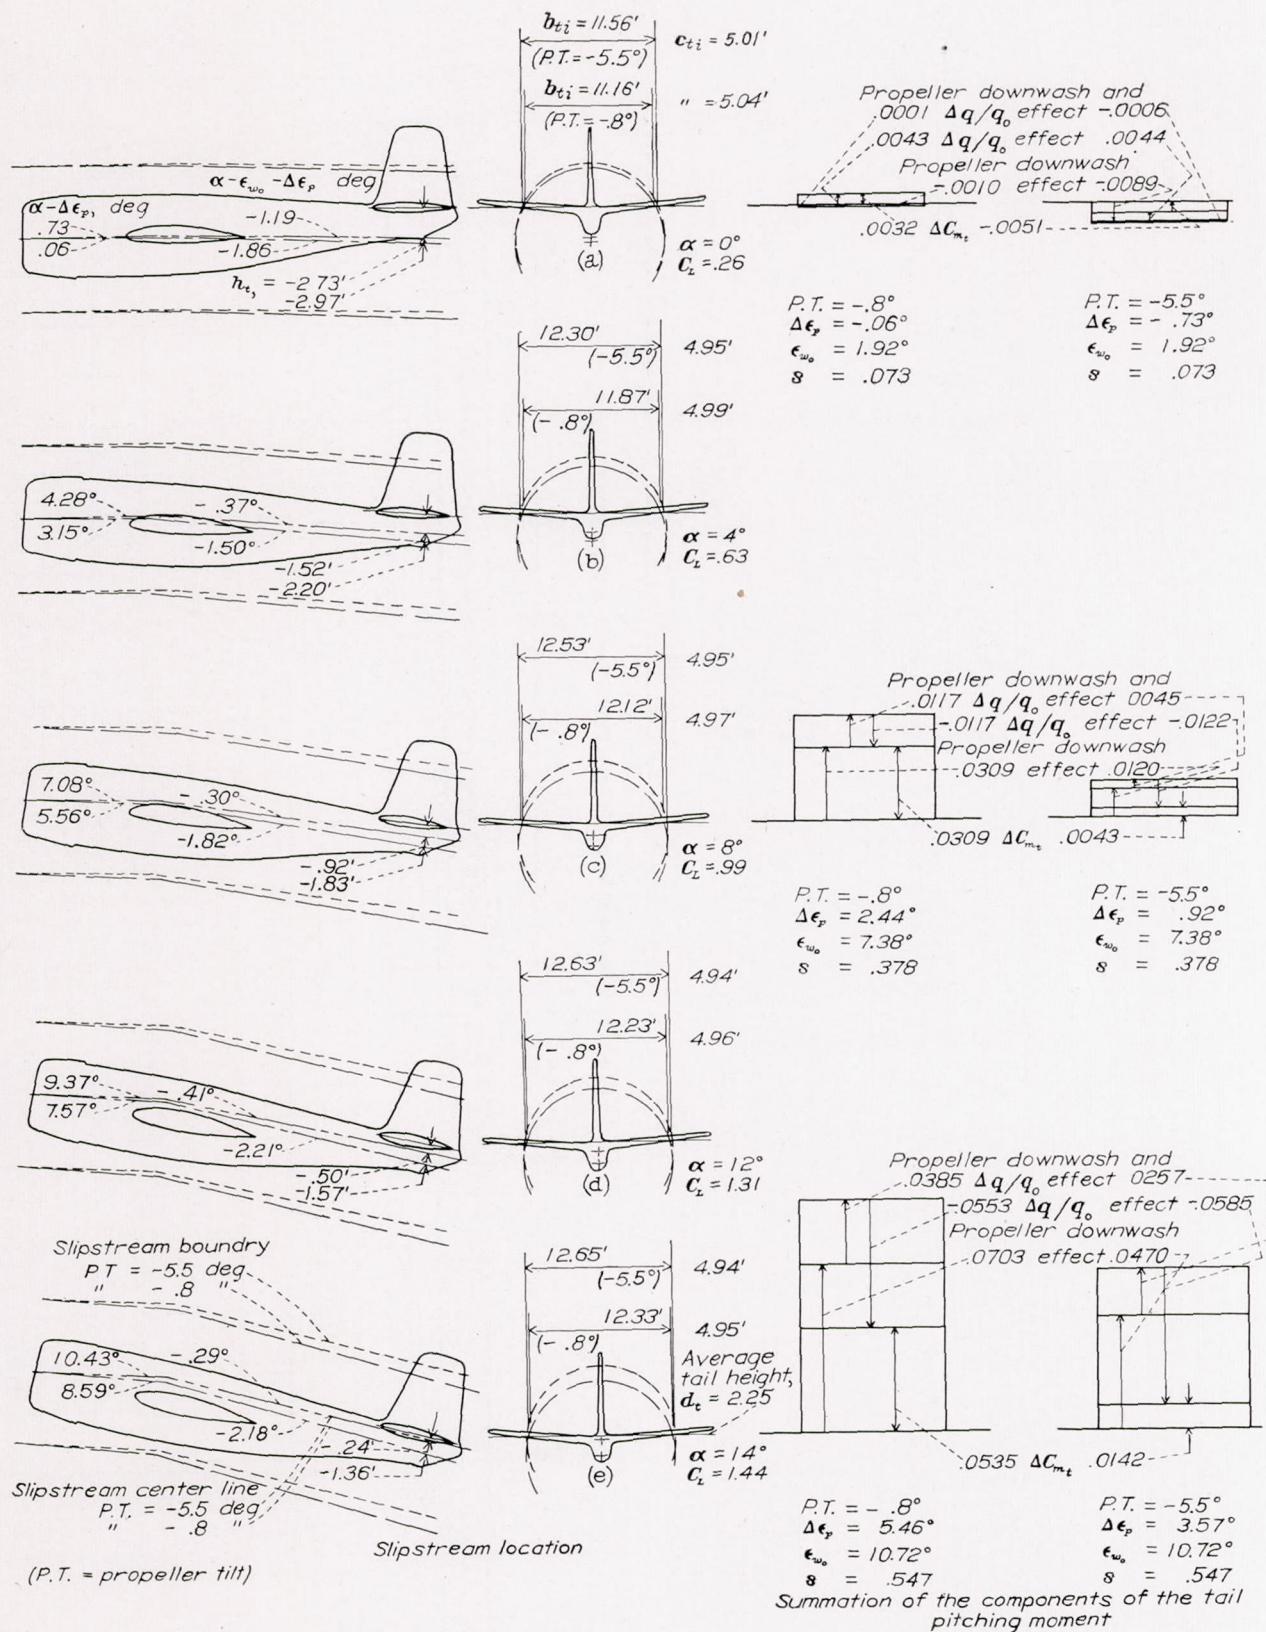 b_ti = 11.56'
c_ti = 5.01'
(P.T. = -5.5°)
b_ti = 11.16'
" = 5.04'
(P.T. = -.8°)
α - ε_w₀ - Δε_p deg
α - Δε_p, deg
.73
-1.19
.06
-1.86
h_t, = -2.73'
-2.97'
(a)
α = 0°
C_L = .26
Propeller downwash and
.0001 Δq/q₀ effect -.0006
.0043 Δq/q₀ effect .0044
Propeller downwash
-.0010 effect -.0089
.0032 ΔC_m_t -.0051
P.T. = -.8°
Δε_p = -.06°
ε_w₀ = 1.92°
s = .073
P.T. = -5.5°
Δε_p = - .73°
ε_w₀ = 1.92°
s = .073
12.30'
(-5.5°)
4.95'
11.87'
4.99'
(- .8°)
4.28°
- .37°
3.15°
-1.50°
-1.52'
-2.20'
(b)
α = 4°
C_L = .63
12.53'
(-5.5°)
4.95'
12.12'
4.97'
(- .8°)
7.08°
- .30°
5.56°
-1.82°
- .92'
-1.83'
(c)
α = 8°
C_L = .99
Propeller downwash and
.0117 Δq/q₀ effect 0045
-.0117 Δq/q₀ effect -.0122
Propeller downwash
.0309 effect .0120
.0309 ΔC_m_t .0043
P.T. = -.8°
Δε_p = 2.44°
ε_w₀ = 7.38°
s = .378
P.T. = -5.5°
Δε_p = .92°
ε_w₀ = 7.38°
s = .378
12.63'
(-5.5°)
4.94'
12.23'
4.96'
(- .8°)
9.37°
- .41°
7.57°
-2.21°
- .50'
-1.57'
(d)
α = 12°
C_L = 1.31
Slipstream boundry
P.T = -5.5 deg
" - .8 "
12.65'
(-5.5°)
4.94'
12.33'
4.95'
(- .8°)
Average
tail height,
d_t = 2.25
10.43°
- .29°
8.59°
-2.18°
- .24'
-1.36'
(e)
α = 14°
C_L = 1.44
Slipstream center line
P.T. = -5.5 deg
" - .8 "
Slipstream location
(P.T. = propeller tilt)
Propeller downwash and
.0385 Δq/q₀ effect 0257
-.0553 Δq/q₀ effect -.0585
Propeller downwash
.0703 effect .0470
.0535 ΔC_m_t .0142
P.T. = - .8°
Δε_p = 5.46°
ε_w₀ = 10.72°
s = .547
P.T. = -5.5°
Δε_p = 3.57°
ε_w₀ = 10.72°
s = .547
Summation of the components of the tail
pitching moment